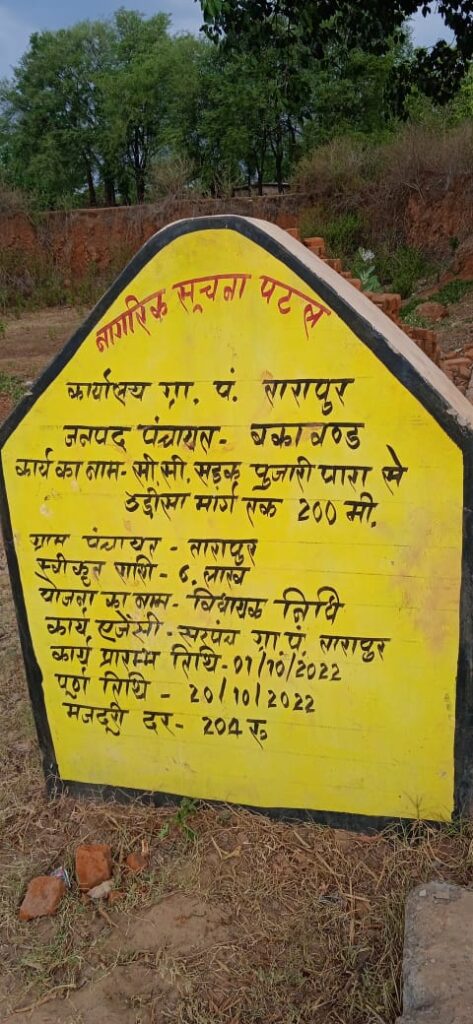 नागरिक सूचना पटल
कार्यालय ग्रा. पं. तारापुर
जनपद पंचायत- बकावण्ड
कार्य का नाम- सी.सी. सड़क पुजारी पारा से
उड़ीसा मार्ग तक 200 मी.
ग्राम पंचायत - तारापुर
स्वीकृत राशि - ८. लाख
योजना का नाम- विधायक निधि
कार्य एजेंसी - सरपंच ग्रा.पं. तारापुर
कार्य प्रारम्भ तिथि - 01/10/2022
पूर्ण तिथि - 20/10/2022
मजदुरी दर- 204 रु